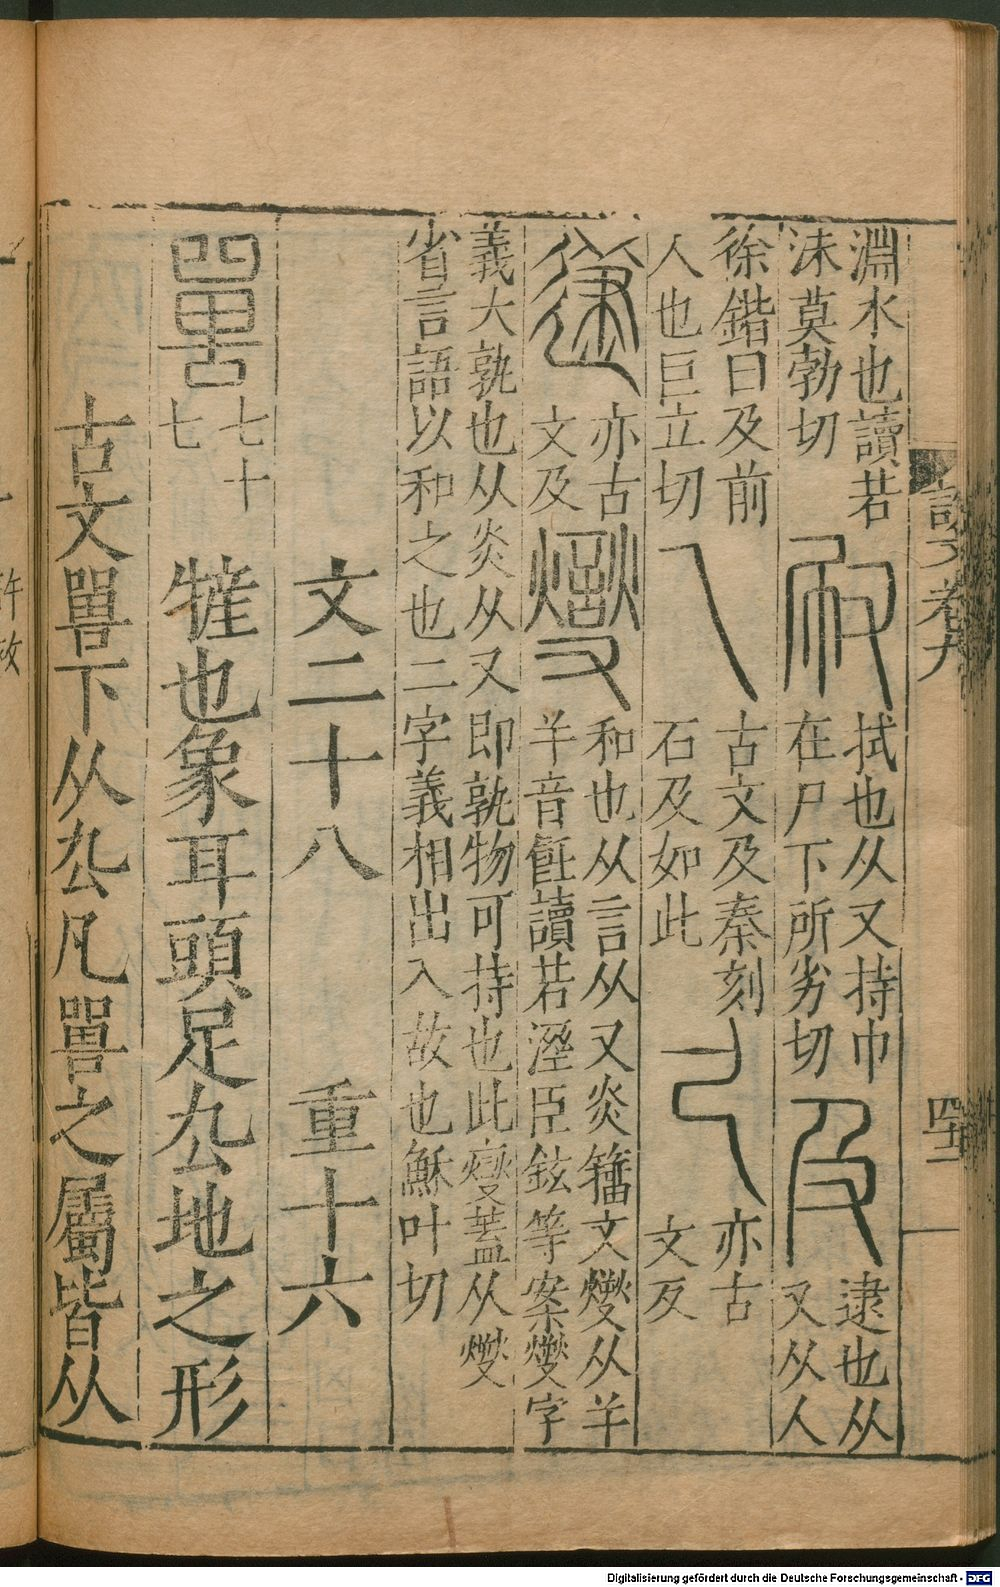 說文卷九
四十二
淵水也讀若
沬莫勃切
㕞
拭也从又持巾
在尸下所劣切
及
逮也从
又从人
徐鍇曰及前
人也巨立切
乁
古文及秦刻
石及如此
弓
亦古
文及
亦古
文及
燮
和也从言从又炎籒文燮从羊
羊音飪讀若溼臣鉉等案燮字
義大孰也从炎从又即孰物可持也此燮蓋从燮
省言語以和之也二字義相出入故也穌叶切
文二十八 重十六
嘼
七十
七
㹌也象耳頭足厹地之形
古文嘼下从厹凡嘼之屬皆从
Digitalisierung gefördert durch die Deutsche Forschungsgemeinschaft - DFG